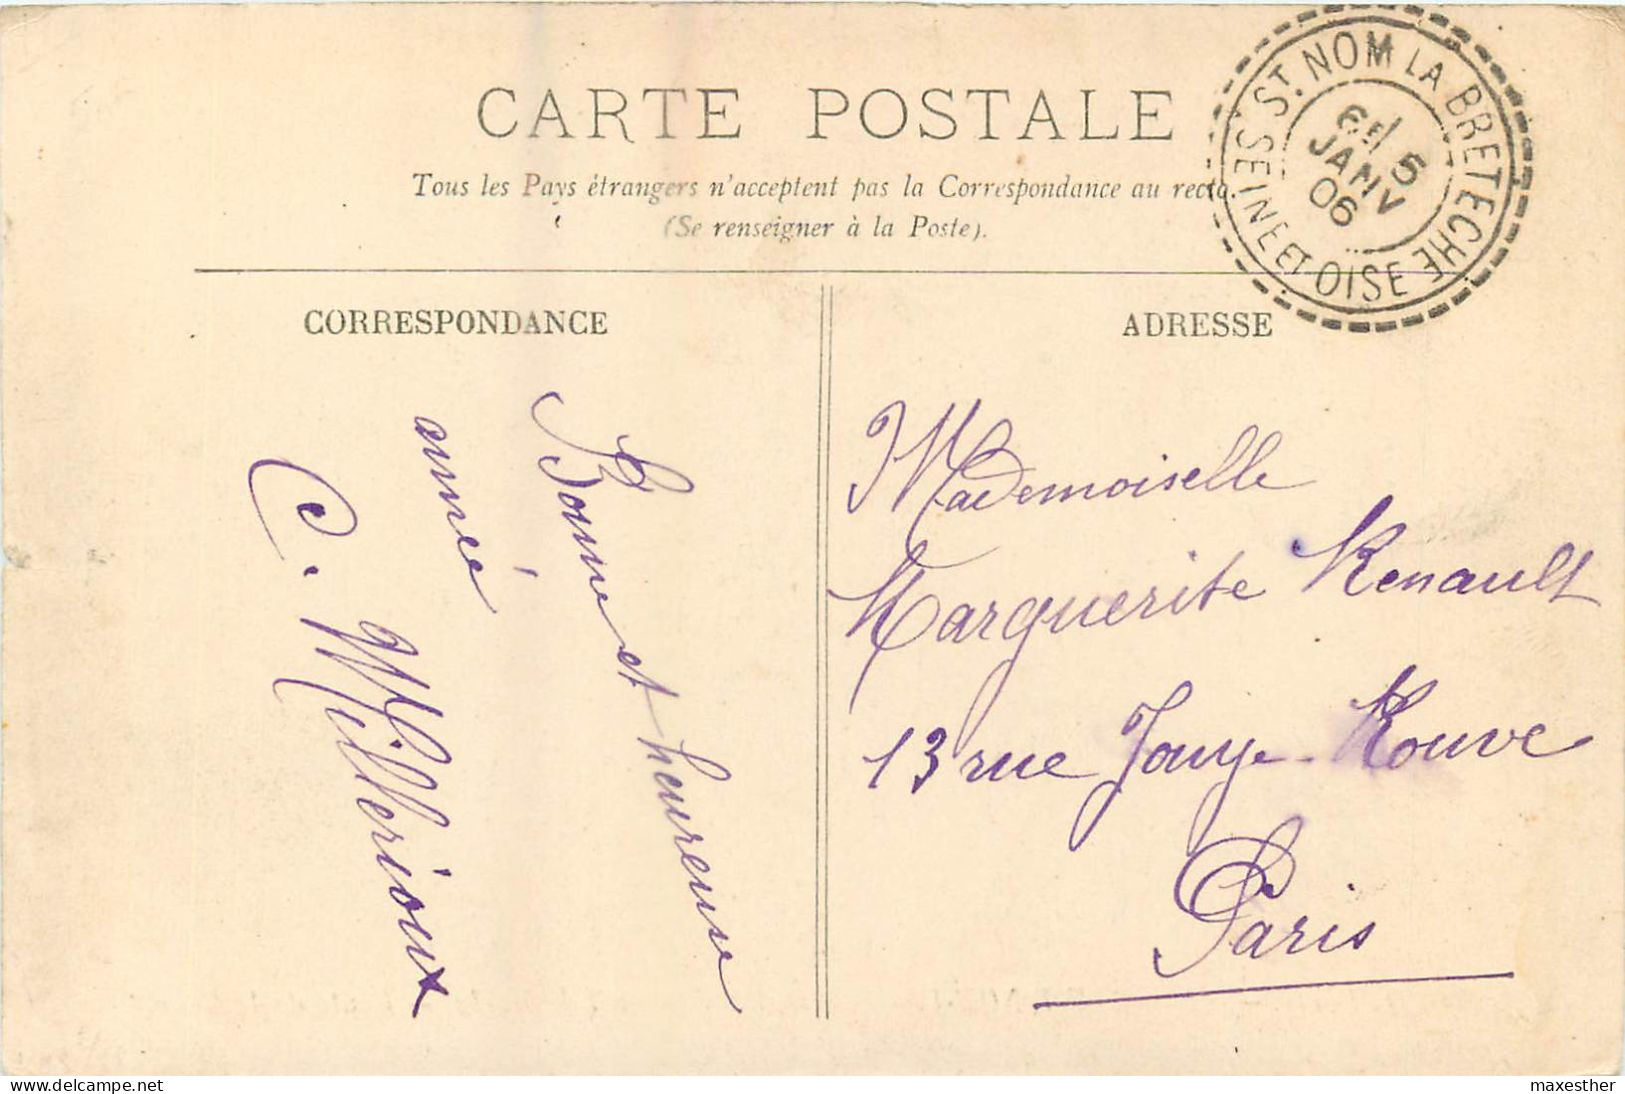 CARTE POSTALE
Tous les Pays étrangers n'acceptent pas la Correspondance au recto.
(Se renseigner à la Poste).
ST. NOM LA BRETECHE
SEINE ET OISE
6E/ 5
JANV
06
CORRESPONDANCE
Bonne et heureuse
année
C. Millerioux
ADRESSE
Mademoiselle
Marguerite Renault
13 rue Jouye-Rouve
Paris
delcampe.net
maxesther